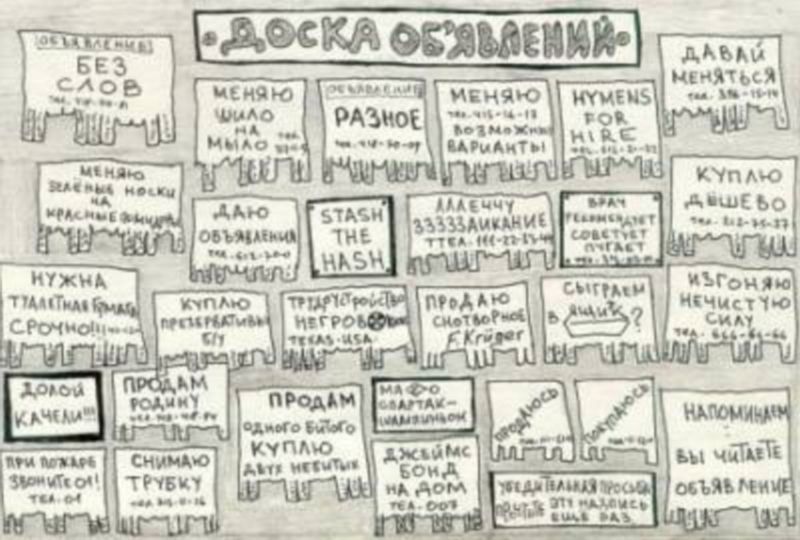 ДОСКА ОБЪЯВЛЕНИЙ
ОБЪЯВЛЕНИЕ
БЕЗ
СЛОВ
МЕНЯЮ
ШИЛО
НА
МЫЛО
ОБЪЯВЛЕНИЕ
РАЗНОЕ
МЕНЯЮ
ВОЗМОЖНЫ
ВАРИАНТЫ
HYMENS
FOR
HIRE
ДАВАЙ
МЕНЯТЬСЯ
МЕНЯЮ
ЗЕЛЁНЫЕ НОСКИ
НА
КРАСНЫЕ
ДАЮ
ОБЪЯВЛЕНИЯ
STASH
THE
HASH
ЛЛЛЕЧЧУ
ЗЗЗЗЗАИКАНИЕ
ВРАЧ
РЕКОМЕНДУЕТ
СОВЕТУЕТ
ПУГАЕТ
КУПЛЮ
ДЁШЕВО
НУЖНА
ТУАЛЕТНАЯ БУМАГА
СРОЧНО!!!
КУПЛЮ
ПРЕЗЕРВАТИВЫ
Б/У
ТРУДРУСТРОЙСТВО
НЕГРОВ
TEXAS-USA
ПРОДАЮ
СНОТВОРНОЕ
F. Krüger
СЫГРАЕМ
В ЯЩИК?
ИЗГОНЯЮ
НЕЧИСТУЮ
СИЛУ
ТЕЛ. 666-66-66
ДОЛОЙ
КАЧЕЛИ!!!
ПРОДАМ
РОДИНУ
ПРОДАМ
ОДНОГО БИТОГО
КУПЛЮ
ДВУХ НЕБИТЫХ
СПАРТАК-
ШАМПИНЬОН
ПРОДАЮСЬ
ПОКУПАЮСЬ
НАПОМИНАЕМ
ВЫ ЧИТАЕТЕ
ОБЪЯВЛЕНИЕ
ПРИ ПОЖАРЕ
ЗВОНИТЕ 01!
ТЕЛ. 01
СНИМАЮ
ТРУБКУ
ДЖЕЙМС
БОНД
НА ДОМ
ТЕЛ. 007
УБЕДИТЕЛЬНАЯ ПРОСЬБА
ПРОЧТИТЕ ЭТУ НАДПИСЬ
ЕЩЕ РАЗ.